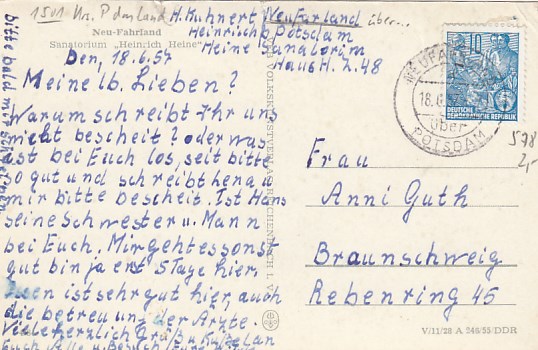 1501 Krs. Potsdam Land
H. Kuhnert Neufarland über...
Heinrich b Potsdam
Heine Sanatorim
Haus H. Z. 48
Neu-Fahrland
Sanatorium „Heinrich Heine"
Den, 18.6.57
Meine lb. Lieben?
Warum schreibt Ihr uns
nicht bescheit? oder was
ist bei Euch los, seit bitte
so gut und schreibt
mir bitte bescheit. Ist Hans
seine Schwester u. Mann
bei Euch. Mir geht es sonst
gut bin ja erst 5 Tage hier.
Essen ist sehr gut hier, auch
die betreuung der Ärzte.
Viele herzlich Grüß u. Küße
bitte bald mit schreiben
VOLKSKUNSTVERLAG REICHENBACH I. V.
10
DEUTSCHE
DEMOKRATISCHE REPUBLIK
18.6.
über
POTSDAM
598
2,-
Frau
Anni Guth
Braunschweig
Rebenring 45
V/11/28 A 246/55/DDR